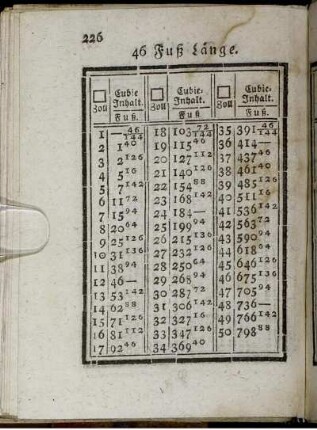 226
46 Fuß Länge.
□ Zoll Cubic-Inhalt. Fuß. □ Zoll Cubic-Inhalt. Fuß. □ Zoll Cubic-Inhalt. Fuß.
1 — 46/144 18 103 72/144 35 391 46/144
2 1 40 19 115 46 36 414 —
3 2 126 20 127 112 37 437 46
4 5 16 21 140 126 38 461 40
5 7 142 22 154 88 39 485 126
6 11 72 23 168 142 40 511 16
7 15 94 24 184 — 41 536 142
8 20 64 25 199 94 42 563 72
9 25 126 26 215 136 43 590 94
10 31 136 27 232 126 44 618 64
11 38 94 28 250 64 45 646 126
12 46 — 29 268 94 46 675 136
13 53 142 30 287 72 47 705 94
14 62 88 31 306 142 48 736 —
15 71 126 32 327 16 49 766 142
16 81 112 33 347 126 50 798 88
17 92 46 34 369 40